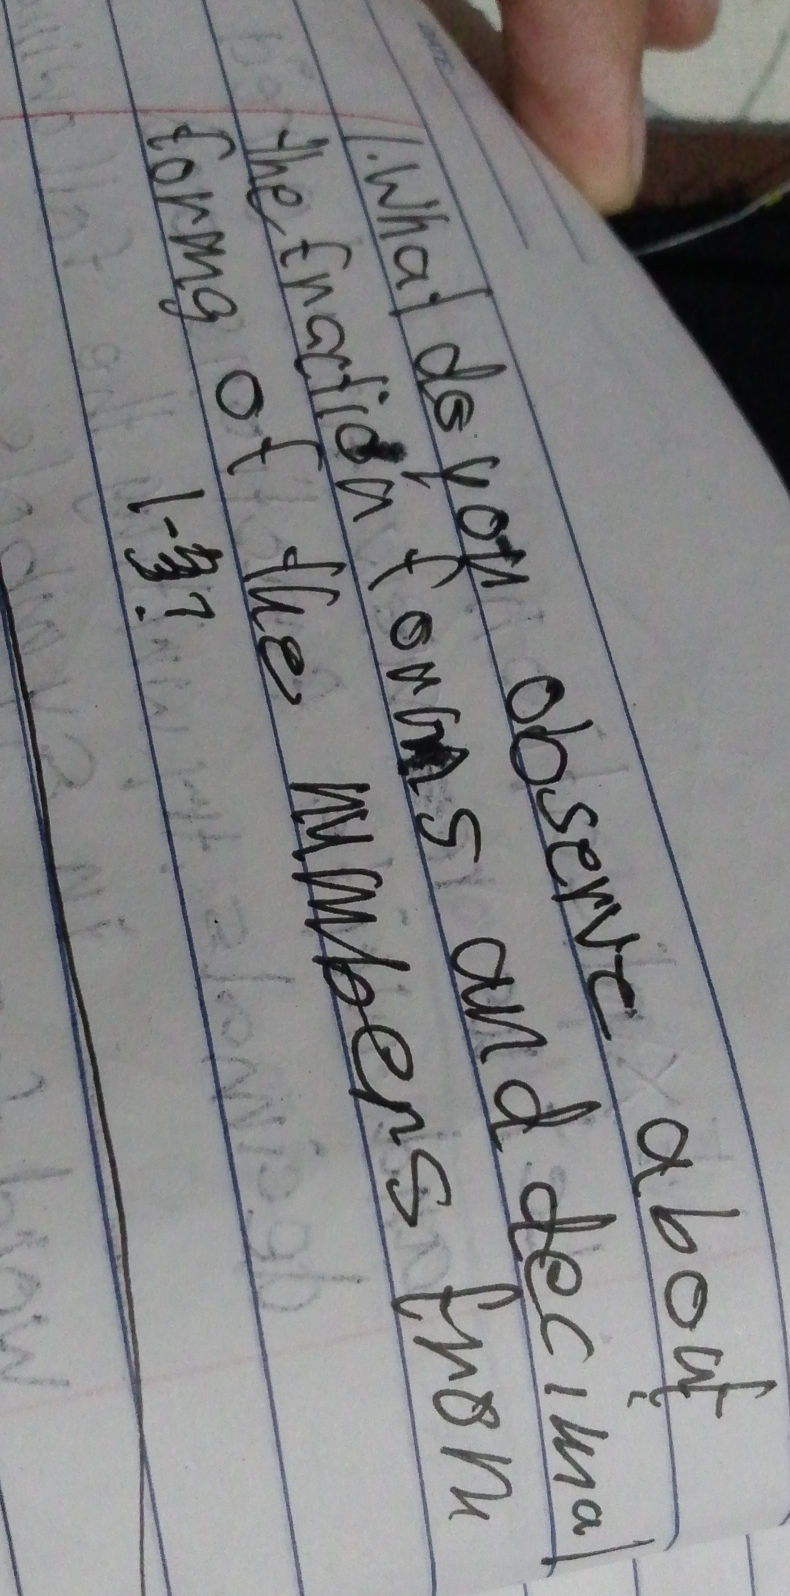 1. What do you observe about
the fraction forms and decimal
forms of the numbers from
1-